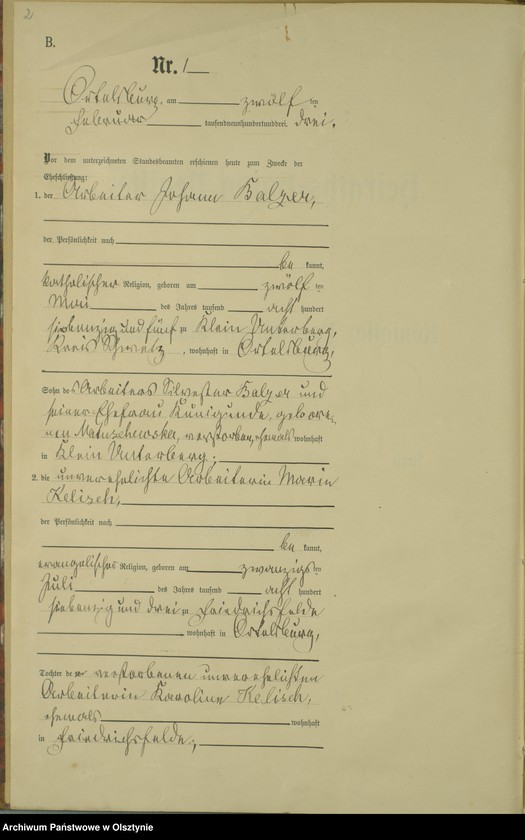 2
B.
Nr. 1
Ortelsburg, am zwölf ten
Februar tausendneunhundertunddrei. drei.
Vor dem unterzeichneten Standesbeamten erschienen heute zum Zwecke der
Eheschließung:
1. der Arbeiter Johann Balzer,
der Persönlichkeit nach
be kannt,
katholischer Religion, geboren am zwölf ten
Mai des Jahres tausend acht hundert
siebenzig und fünf zu Klein Unterberg,
Kreis Schwetz, wohnhaft in Ortelsburg,
Sohn des Arbeiters Silvester Balzer und
seiner Ehefrau Kunigunde, gebore-
nen Matuschewska, verstorben, ehemals wohnhaft
in Klein Unterberg;
2. die unverehelichte Arbeiterin Marie
Kelisch,
der Persönlichkeit nach
be kannt,
evangelischer Religion, geboren am zwanzigs ten
Juli des Jahres tausend acht hundert
siebenzig und drei zu Friedrichsfelde
wohnhaft in Ortelsburg,
Tochter der verstorbenen unverehelichten
Arbeiterin Karoline Kelisch,
ehemals wohnhaft
in Friedrichsfelde;
Archiwum Państwowe w Olsztynie